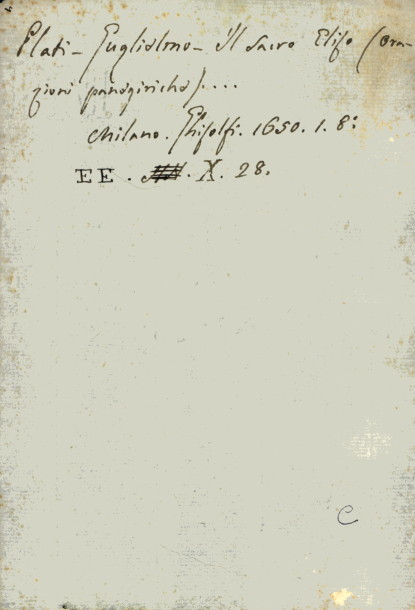 Plati - Guglielmo - Il Sacro Eliso (Ora-
zioni panegiriche)....
Milano. Ghisolfi. 1650. 1. 8:
EE. X. 28.
C